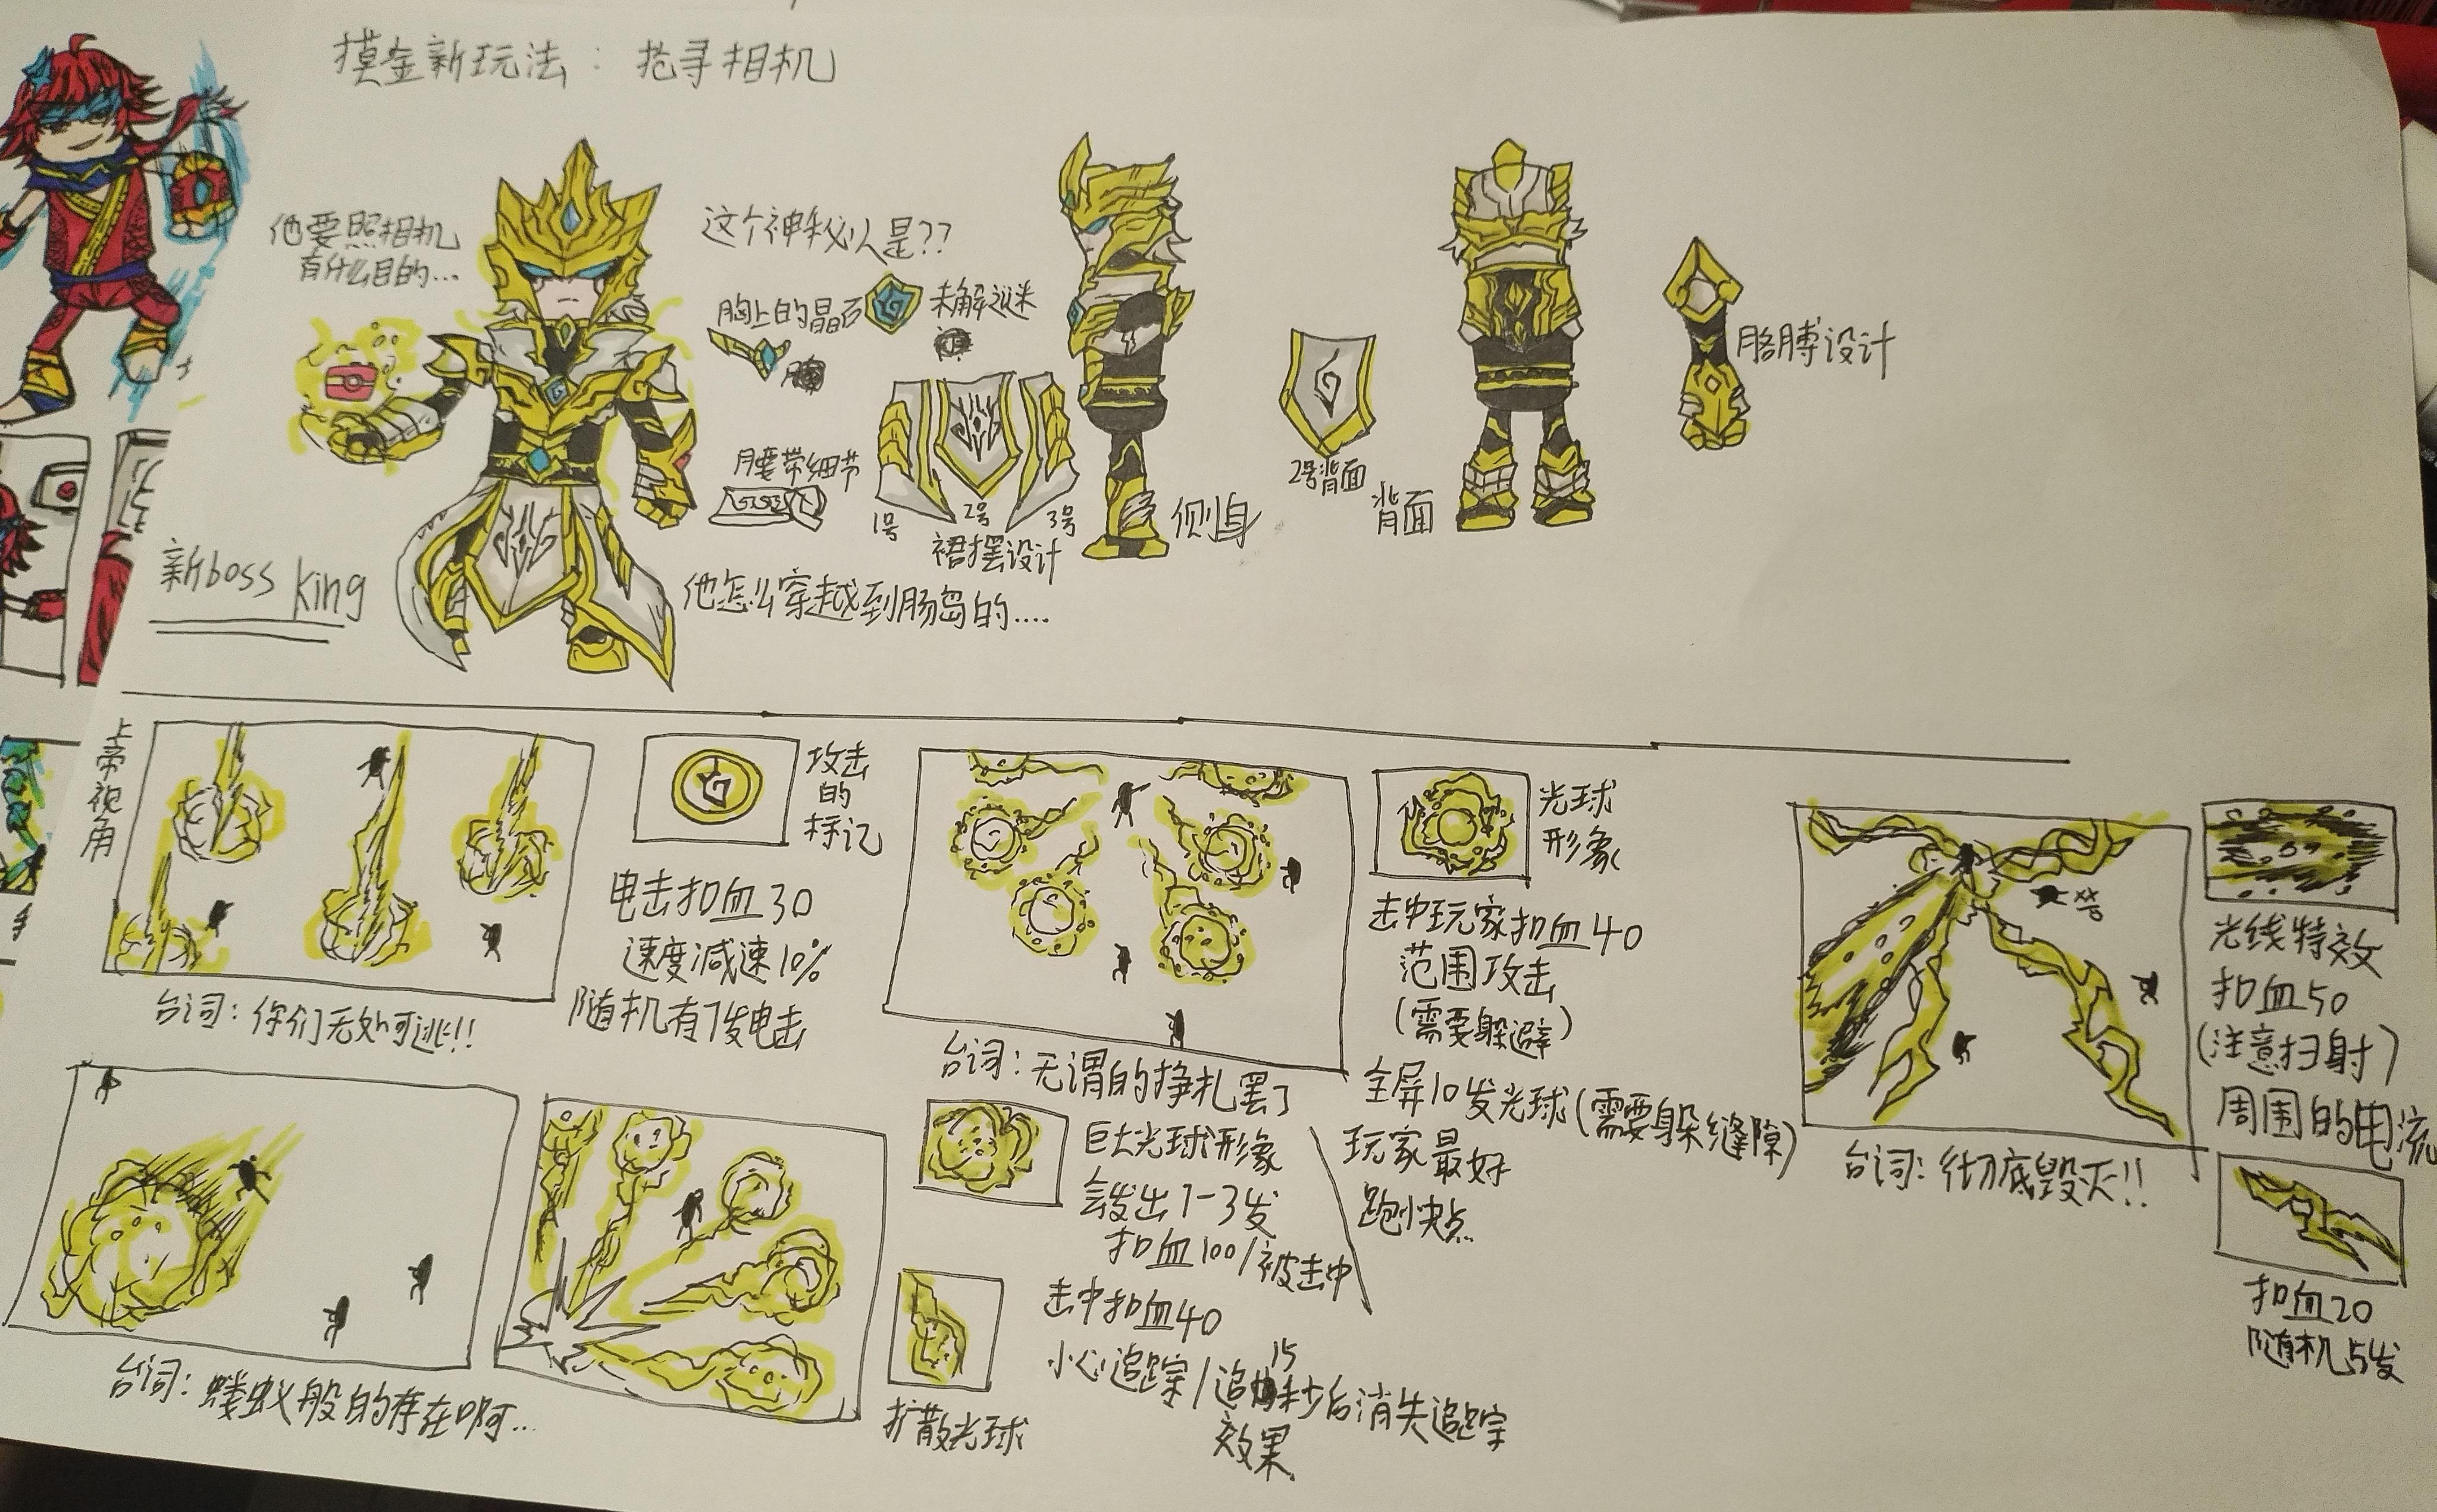 摸金新玩法：抢寻相机
他要照相机
有什么目的...
这个神秘人是??
胸上的晶石
未解之谜
腰带细节
1号
2号
3号
裙摆设计
侧身
2号背面
背面
胳膊设计
新boss King
他怎么穿越到肠岛的....
上帝视角
攻击
的
标记
电击扣血30
速度减速10%
随机有7发电击
台词：你们无处可逃!!
光球
形象
击中玩家扣血40
范围攻击
(需要躲避)
全屏10发光球(需要躲缝隙)
台词：无谓的挣扎罢了
光线特效
扣血50
(注意扫射)
周围的电流
扣血20
随机5发
台词：彻底毁灭!!
巨大光球形象
会发出1-3发
扣血100/被击中
玩家最好
跑快点
台词：蝼蚁般的存在啊...
扩散光球
击中扣血40
小心追踪/追踪15秒后消失追踪
效果